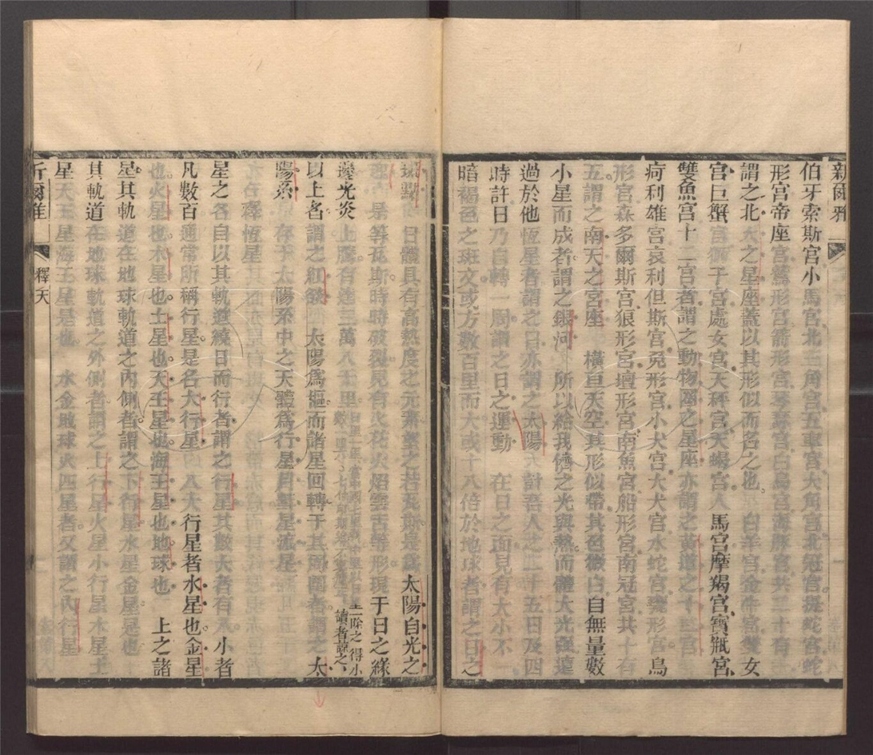 新爾雅
伯牙索斯宮小馬宮北三角宮五車宮大角宮北冠宮提蛇宮蛇
形宮帝座宮鷲形宮箭形宮琴形宮白鳥宮海豚宮共
謂之北天之星座蓋以其形似而名之也 白羊宮金牛宮雙女
宮巨蟹宮獅子宮處女宮天秤宮天蝎宮人馬宮摩羯宮寶瓶宮
雙魚宮十二宮者謂之動物圈之星座亦謂之黃道之十二宮
疴利雄宮哀利但斯宮兔形宮小犬宮大犬宮水蛇宮甕形宮烏
形宮森多爾斯宮狼形宮壇形宮南魚宮船形宮南冠宮共十有
五謂之南天之宮座 橫亘天空其形似帶其色微白自無量數
小星而成者謂之銀河 所以給我儕之光與熱而體大光強遠
過於他恆星者謂之日亦謂之太陽 計吾人之二十五日及四
時許日乃自轉一周謂之日之運動 在日之面見有大小不
暗褐色之斑文或方數百里而大或十八倍於地球者謂之日之
斑點 日體具有高熱度之元素氣之若瓦斯是為太陽自光之
是等瓦斯時時破裂見有火花火焰雲雨等形現于日之緣
邊光炎上騰有達三萬八千里
以上者謂之紅燄 太陽為樞而諸星回轉于其周圍者謂之太
陽系 存于太陽系中之天體為行星月彗星流星
釋恆星
星之各自以其軌道繞日而行者謂之行星其數大者有八小者
凡數百通常所稱行星是名大行星 八大行星者水星也金星
也火星也木星也土星也天王星也海王星也地球也 上之諸
星其軌道在地球軌道之內側者謂之下行星水星金星是也
其軌道在地球軌道之外側者謂之上行星火星小行星木星土
星天王星海王星是也 水金地球火四星者又謂之內行星
新爾雅
釋天